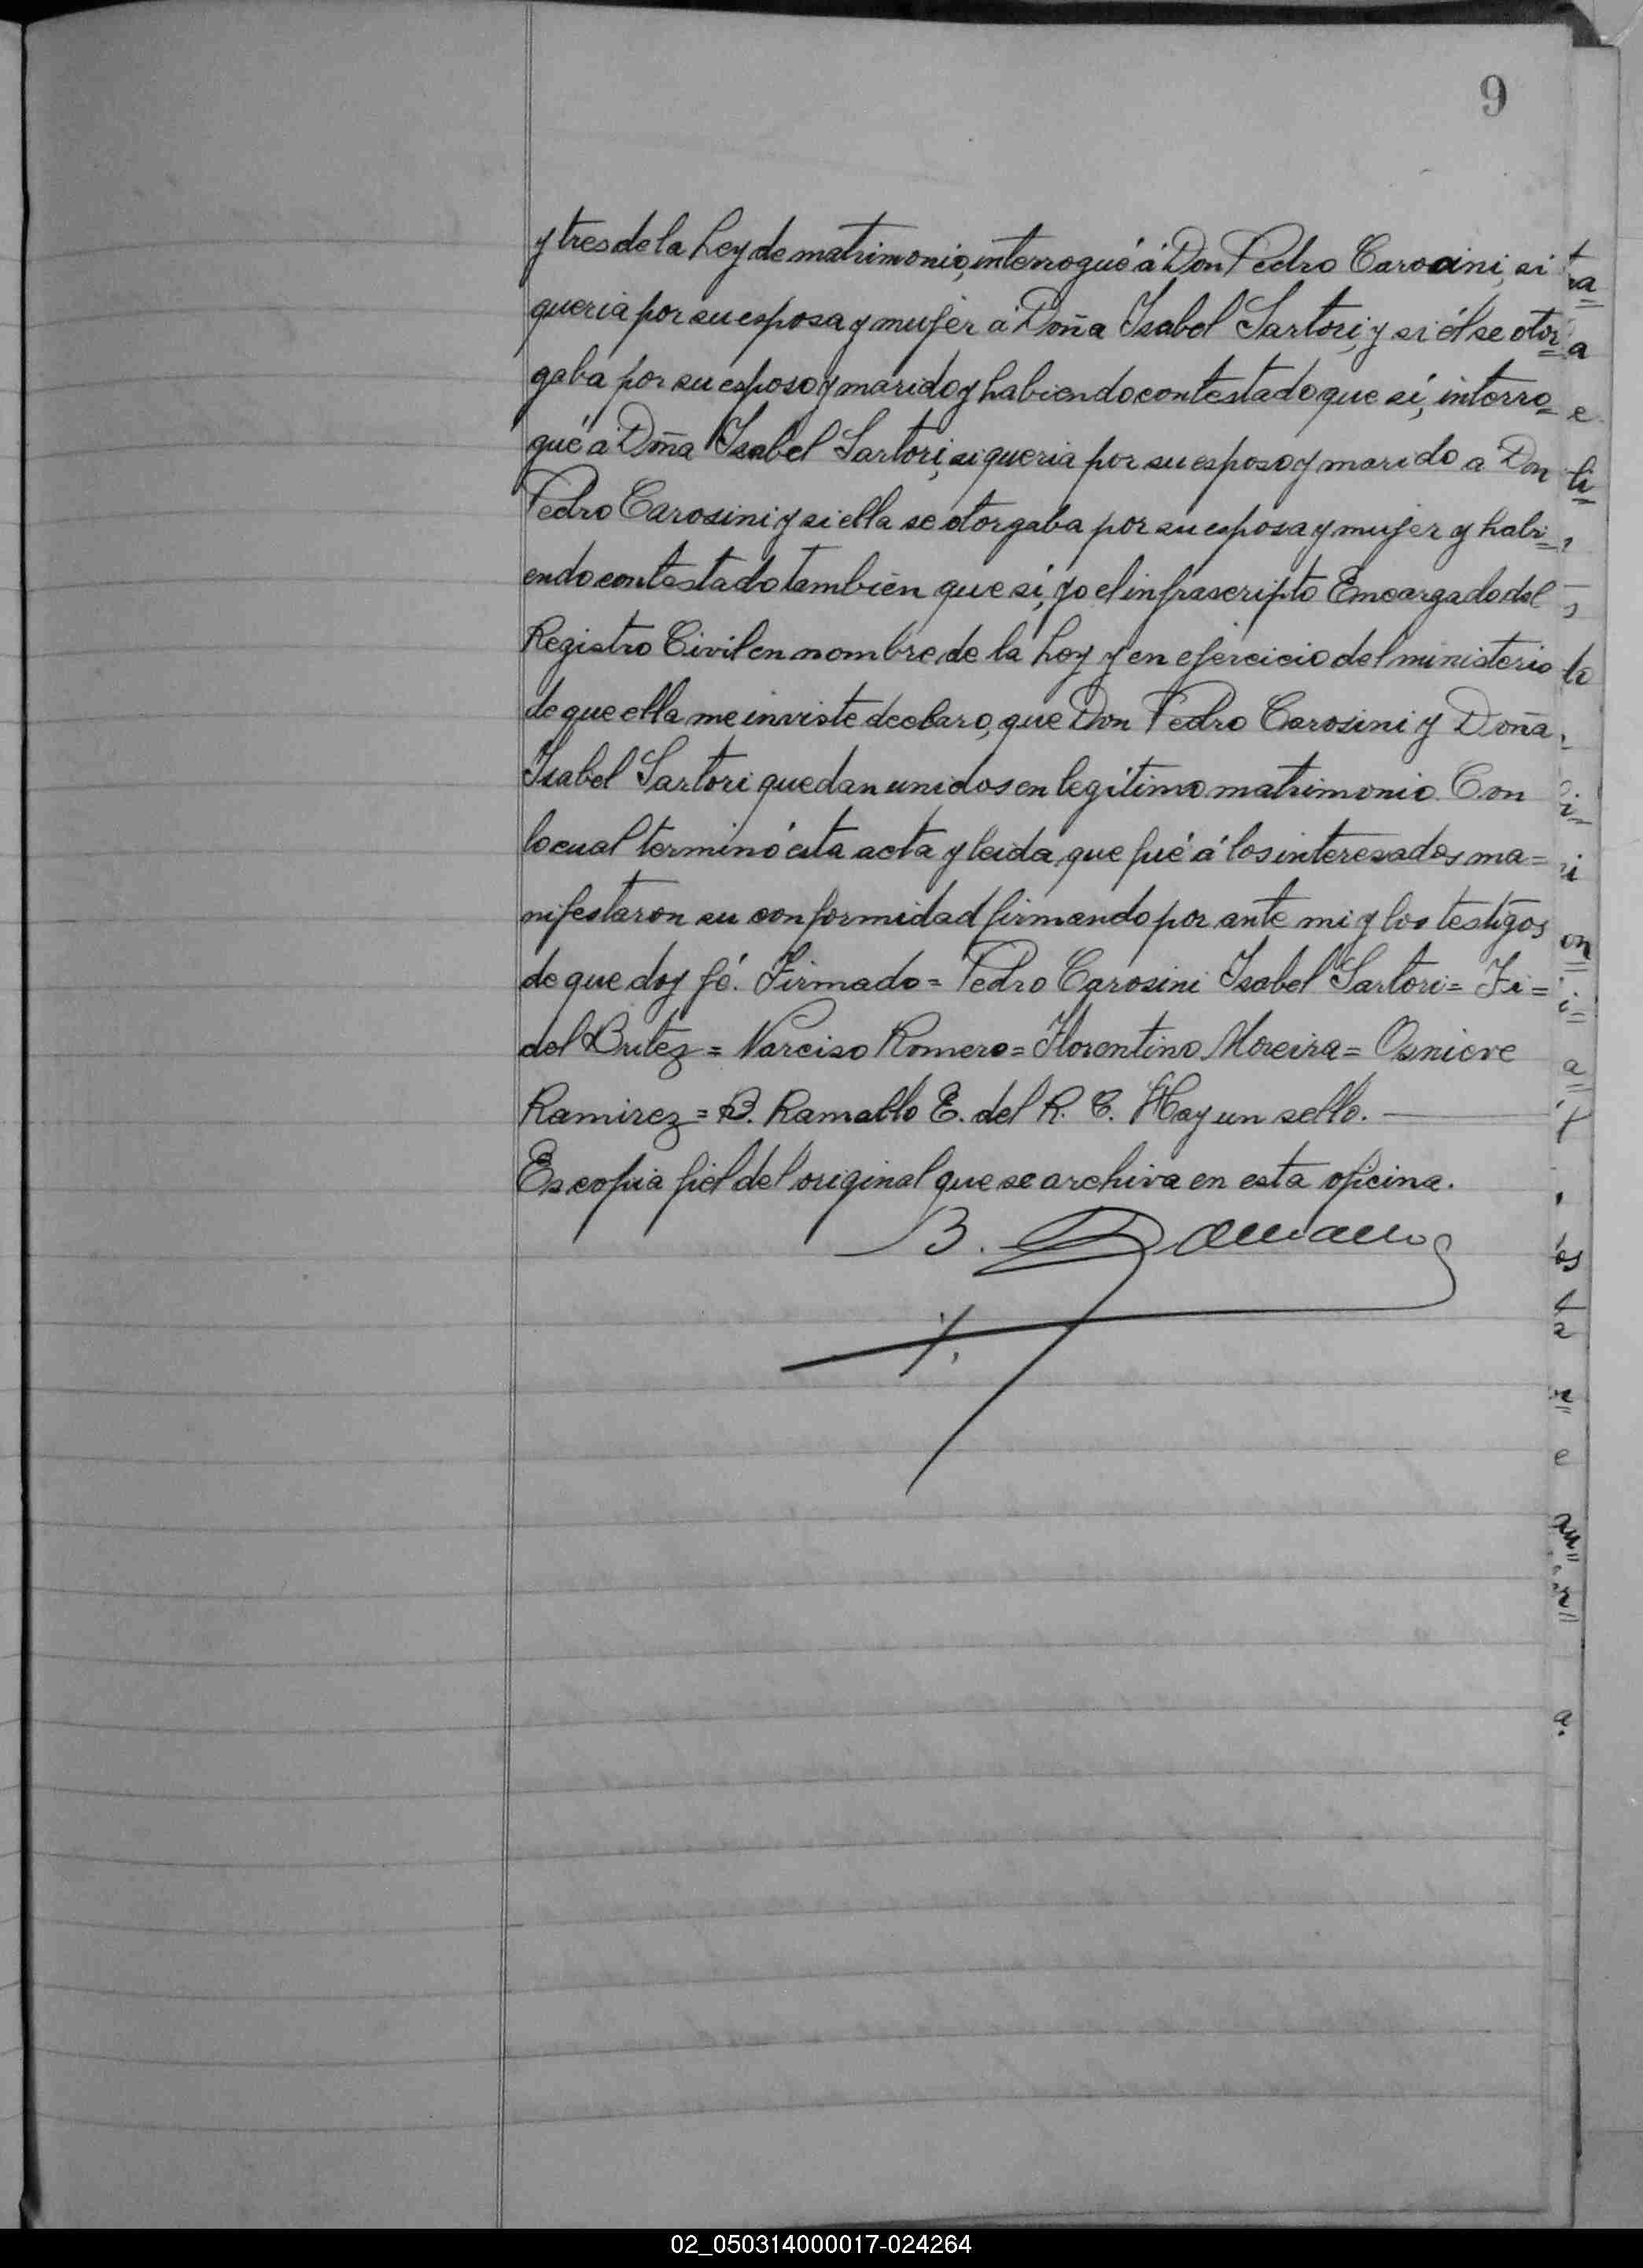 9
y tres de la Ley de matrimonio, interrogué á Don Pedro Carosini, si
queria por su esposa y mujer a Doña Isabel Sartori, y si él se otor=
gaba por su esposo y marido y habiendo contestado que sí, interro=
gué a Doña Isabel Sartori, si queria por su esposo y marido a Don
Pedro Carosini y si ella se otorgaba por su esposa y mujer y habi=
endo contestado tambien que sí, yo el infrascripto Encargado del
Registro Civil en nombre de la Ley y en ejercicio del ministerio
de que ella me inviste declaro, que Don Pedro Carosini y Doña
Isabel Sartori quedan unidos en legítimo matrimonio. Con
lo cual terminó esta acta y leida que fué á los interesados ma=
nifestaron su conformidad firmando por ante mi y los testigos
de que doy fé. Firmado = Pedro Carosini Isabel Sartori = Fi=
del Britez = Narciso Romero = Florentino Moreira = Osnieve
Ramirez = B. Ramallo E. del R. C. Hay un sello.
Es copia fiel del original que se archiva en esta oficina.
B. Ramallo
02_050314000017-024264